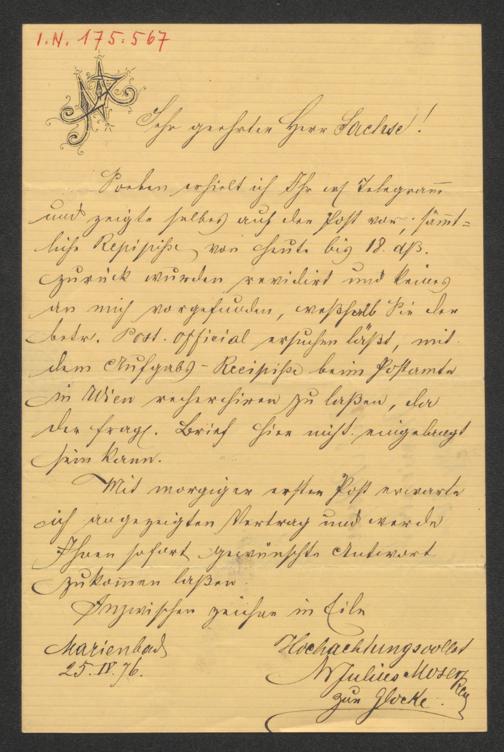 I.N. 175.567
Sehr geehrter Herr Sachse!
Soeben erhielt ich Ihr Telegramm
und zeigte selbes auf der Post vor, sämmt=
liche Rezipisse von heute bis 18. dß.
zurück wurden revidirt und keines
an mich vorgefunden, weßhalb Sie der
betr. Post. official ersuchen läßt, mit
dem Aufgabs-Recipisse beim Postamte
in Wien recherchiren zu laßen, da
der fragl. Brief hier nicht eingelangt
sein kann.
Mit morgiger ersten Post erwarte
ich angezeigten Vertrag und werde
Ihnen sofort gewünschte Antwort
zukommen laßen
Inzwischen zeichne in Eile
Marienbad
25. IV. 76.
Hochachtungsvollst
Julius Moser
zur Glocke.